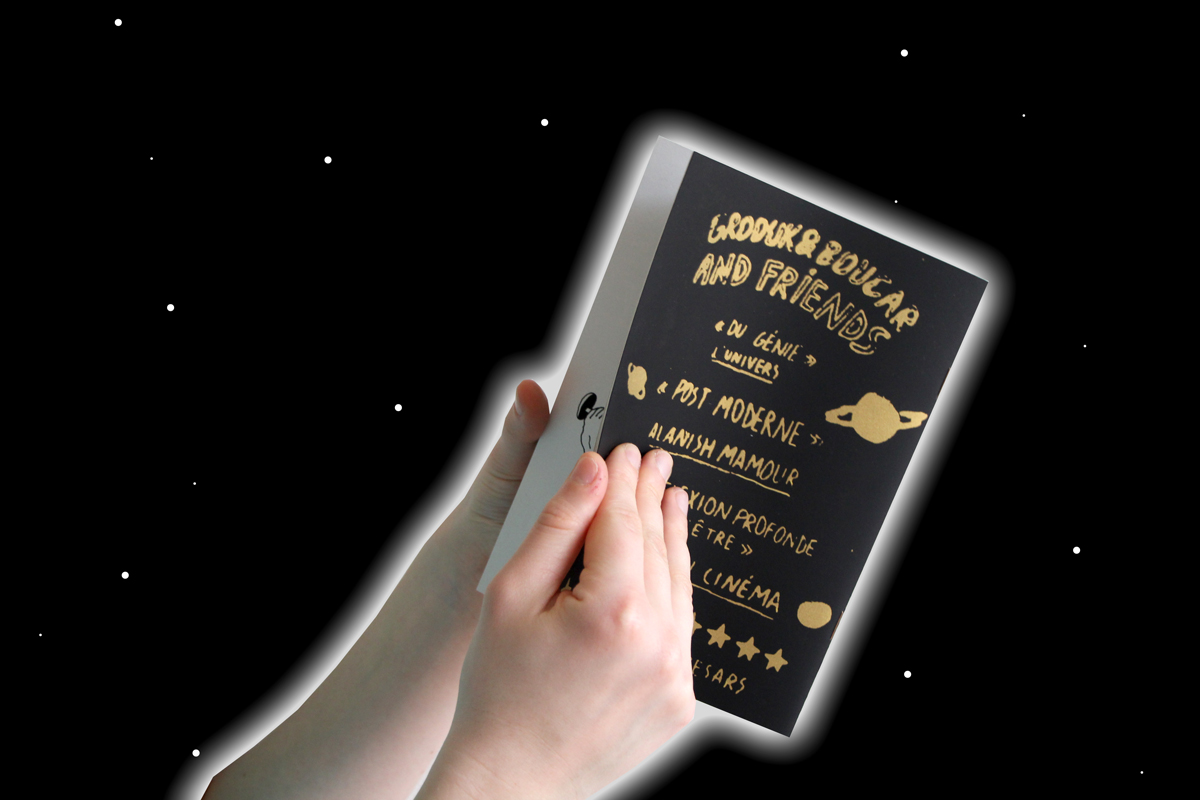 GRODUK & BOUCAR
AND FRIENDS
« DU GÉNIE »
L'UNIVERS
« POST MODERNE »
ALANISH MAMOUR
XION PROFONDE
ÊTRE »
CINÉMA
ESARS